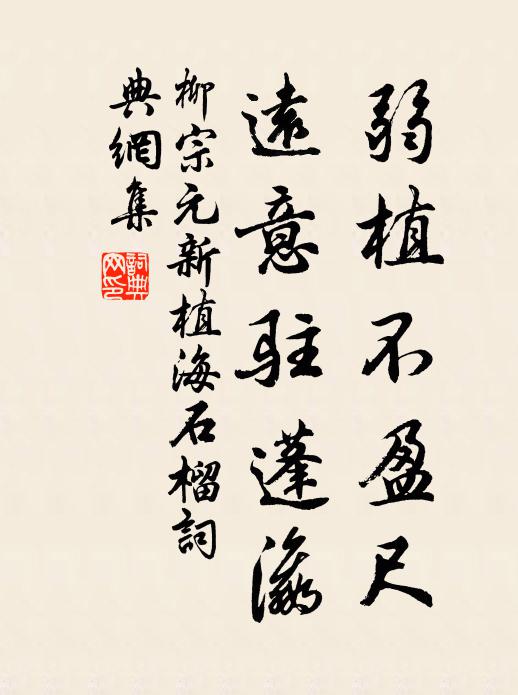 弱植不盈尺
遠意駐蓬瀛
柳宗元新植海石榴詞
典網集
詞典网印